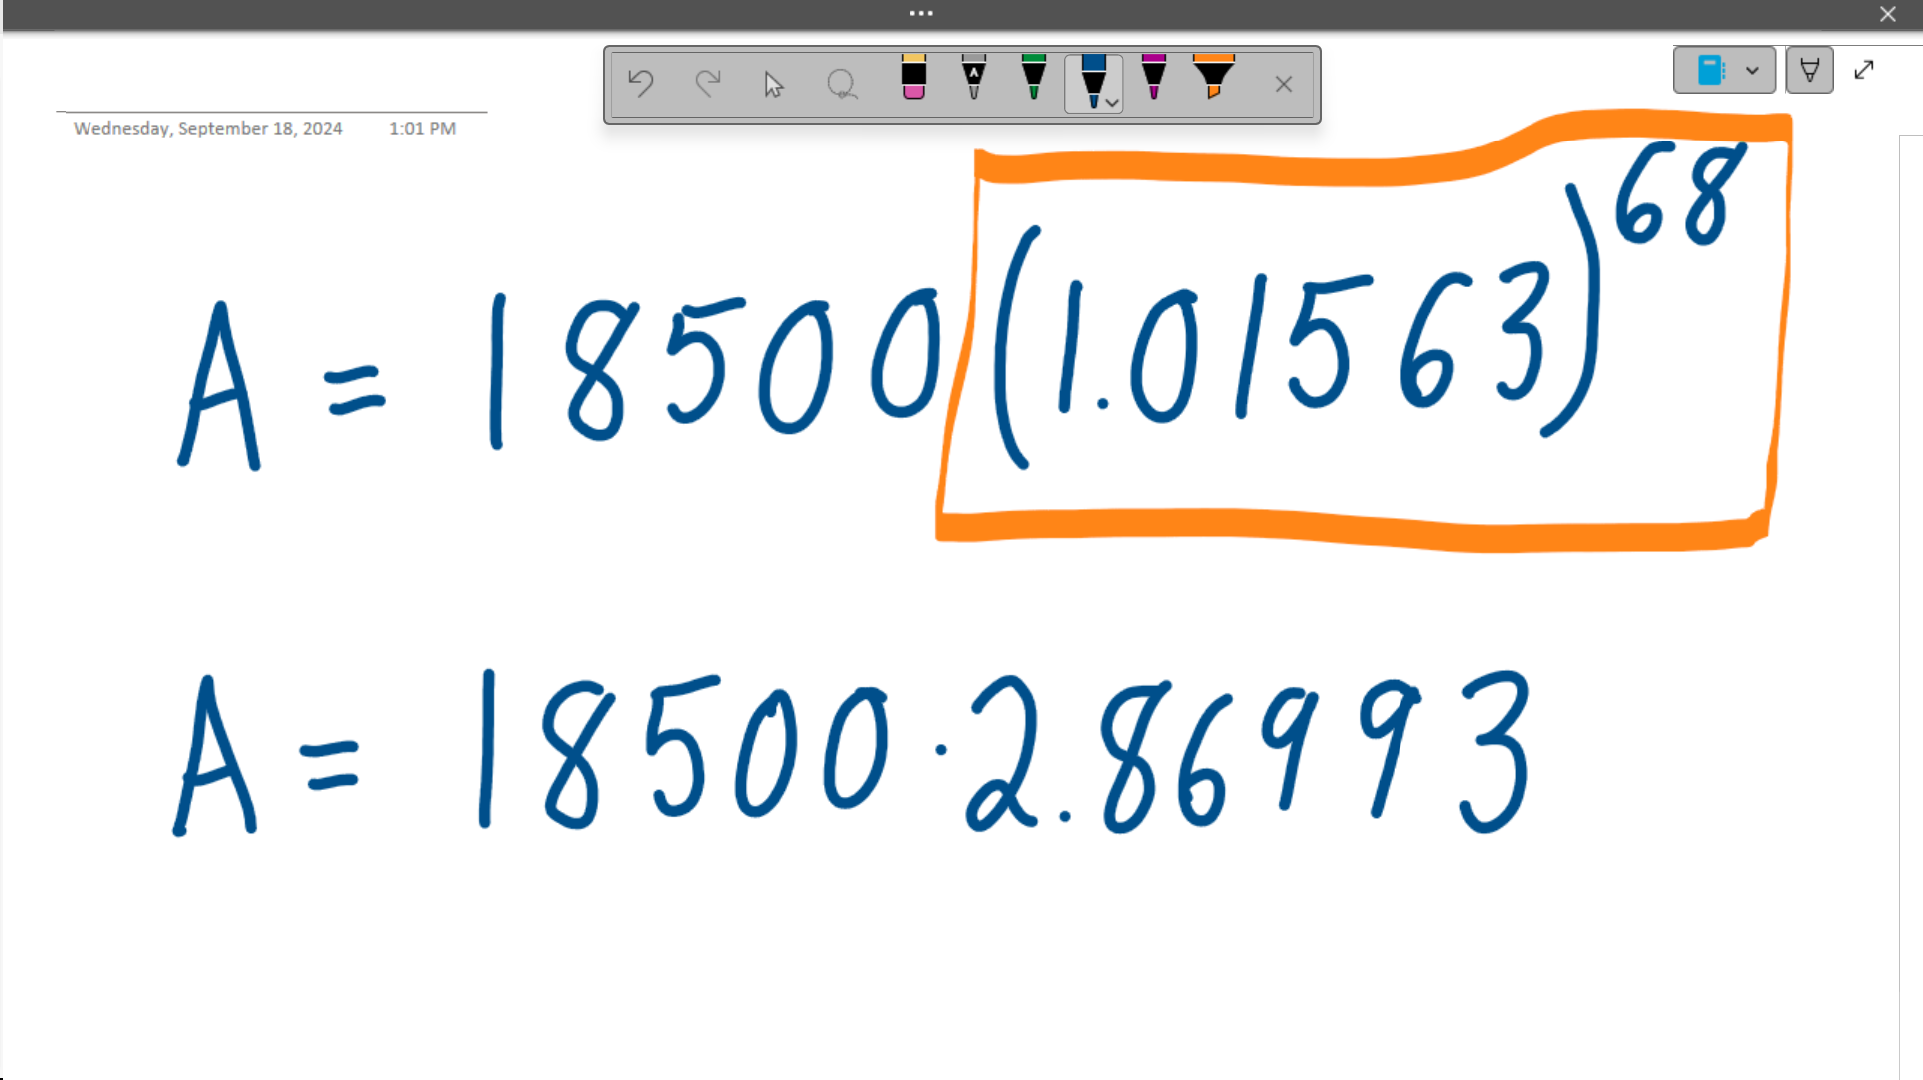 Wednesday, September 18, 2024 1:01 PM
A = 18500(1.01563)^68
A = 18500·2.86993